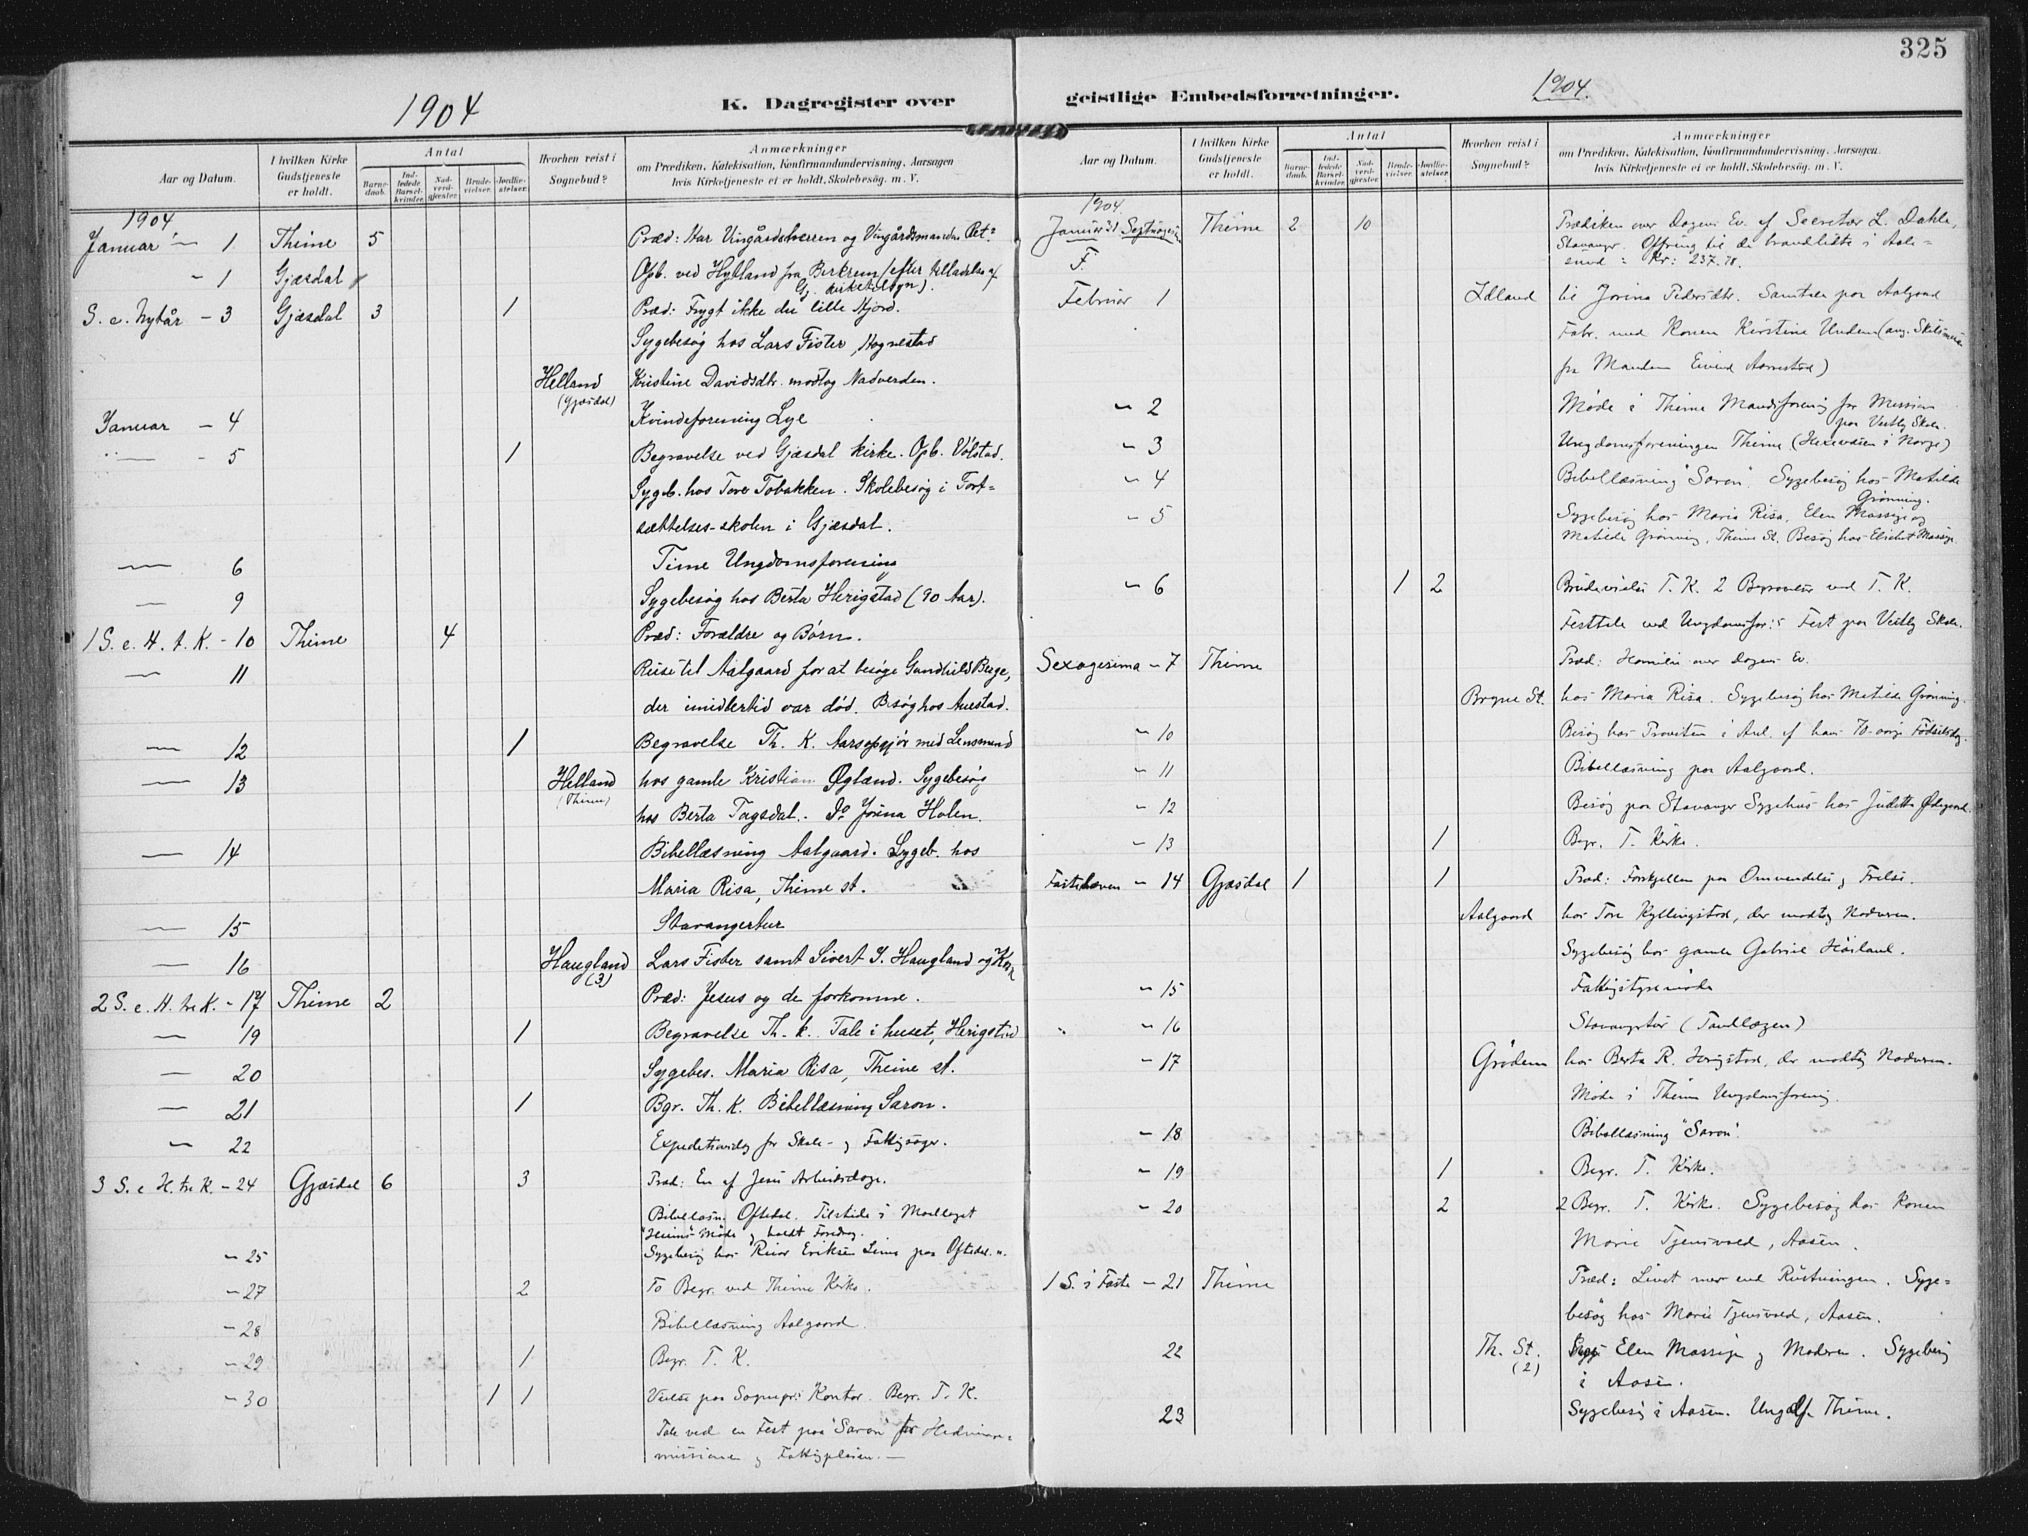 325
1904
K. Dagregister over
geistlige Embedsforretninger.
1904.
Aar og Datum.
I hvilken Kirke Gudstjeneste er holdt.
Antal
Barnedaab.
Indledede Barselkvinder.
Nadverdgjester.
Brudevielser.
Jordfæstelser.
Hvorhen reist i Sognebud?
Anmærkninger
om Prædiken, Katekisation, Konfirmandundervisning, Aarsagen
hvis Kirketjeneste ei er holdt, Skolebesøg. m. V.
1904
Januar — 1 Thime 5 Præd: Har Vingårdsherren og Vingårdsmanden Ret?
— 1 Gjæsdal Opb. ved Hylland fra Berkrem (efter tilladelse af
Gj. kirketilsyn).
S. e. Nytår — 3 Gjæsdal 3 1 Præd: Frygt ikke du lille Hjord.
Sygebesøg hos Lars Fister, Hognestad
Helland Kristine Davidsdtr. modtog Nadverden.
(Gjæsdal)
Januar — 4 Kvindeforening Lye
— 5 1 Begravelse ved Gjæsdal kirke. Opb. Volstad.
Sygeb. hos Tore Tobakken. Skolebesøg i Fort=
sættelses-skolen i Gjæsdal.
— 6 Time Ungdomsforening
— 9 Sygebesøg hos Berta Herigstad (90 Aar).
1 S. e. H. t. K. — 10 Thime 4 Præd: Forældre og Børn.
— 11 Reise til Aalgaard for at besøge Gundhild Berge,
der imidlertid var død. Besøg hos Auestad.
— 12 1 Begravelse Th. K. Aarsopgjør med Lensmand
— 13 Helland hos gamle Kristian Øgland. Sygebesøg
(Thime)
hos Berta Tagsdal. Do Jorina Holen.
— 14 Bibellæsning Aalgaard. Sygeb. hos
Maria Risa, Thime st.
— 15 Stavangertur
— 16 Haugland Lars Fister samt Sivert J. Haugland og Kone
(3)
2 S. e. H. tre K. — 17 Thime 2 Præd: Jesus og de forkomne.
— 19 1 Begravelse Th. k. Tale i huset, Herigstad
— 20 Sygebes. Maria Risa, Thime st.
— 21 1 Bgr. Th. K. Bibellæsning Saron.
— 22 for Skole- og Fattigsager.
3 S. e H. tre K. — 24 Gjæsdal 6 3 Præd: En af Jesu Arbeidsdage.
Bibellæsn. Oftedal. Tilstede i
"Heims" Møde og holdt Foredrag.
— 25 Sygebesøg hos Eriksen Lima paa Oftedal.
— 27 2 To Begr. ved Thime Kirke.
— 28 Bibellæsning Aalgaard.
— 29 1 Begr. T. K.
— 30 1 1 Vielse paa Sognepr: Kontor. Begr. T. K.
Tale ved en Fest paa "Saron" for
missionen og Fattigpleien. —
Aar og Datum.
I hvilken Kirke Gudstjeneste er holdt.
Antal
Barnedaab.
Indledede Barselkvinder.
Nadverdgjester.
Brudevielser.
Jordfæstelser.
Hvorhen reist i Sognebud?
Anmærkninger
om Prædiken, Katekisation, Konfirmandundervisning, Aarsagen
hvis Kirketjeneste ei er holdt, Skolebesøg. m. V.
1904.
Januar 31 Thime 2 10 Prædiken over Dagens Ev. af Secretær L. Dahle,
Stavanger. Offring til de brandlidte i Aale=
sund: Kr: 237.78.
F.
Februar 1 til Jorina Pedersdtr. Samtale paa Aalgaard
Fabr. med Konen Kirstine Undem (ang. Skilsmisse
fra Manden Eivind Aarrestad)
— 2 Møde i Thime Mandsforening for Mission
paa Vestly Skole.
— 3 Ungdomsforeningen Thime (Hexevæsen i Norge)
— 4 Bibellæsning "Saron". Sygebesøg hos Matilde
Grønning.
— 5 Sygebesøg hos Maria Risa, Elen Massige og
Matilde Grønning, Thime St. Besøg hos Massige.
— 6 1 2 Brudevielse T. K. 2 Begravelser ved T. K.
Festtale ved Ungdomsfor:s Fest paa Vestly Skole.
Sexagesima — 7 Thime Præd: Homili over Dagens Ev.
Bryne St. hos Maria Risa. Sygebesøg hos Matilde Grønning.
— 10 Besøg hos Provsten i Anl. af hans 70-årige Fødselsdag.
— 11 Bibellæsning paa Aalgaard.
— 12 Besøg paa Stavanger Sygehus hos Judithe Ødegaard.
— 13 1 Begr. T. Kirke.
Fastelaven — 14 Gjæsdal 1 1 Præd: Forskjellen paa Omvendelse og Frelse.
Aalgaard hos Tore Kyllingstad, der modtog Nadveren.
Sygebesøg hos gamle Gabriel Høiland.
— 15 Fattigstyremøde
— 16 Stavangertur (Tandlægen)
— 17 Grødem hos Berta R. Herigstad, der modtog Nadveren.
Møde i Thime Ungdomsforening.
— 18 Bibellæsning "Saron".
— 19 1 Begr. T. Kirke.
— 20 2 2 Begr. T. Kirke. Sygebesøg hos Konen
Marie Tjensvold, Aasen.
1 S. i Faste — 21 Thime Præd: Livet mer end Rustningen. Syge=
besøg hos Marie Tjensvold, Aasen.
22 Th. St. Elen Massige og Moderen. Sygebesøg
(2)
i Aasen.
23 Sygebesøg i Aasen. Ungdf. Thime.